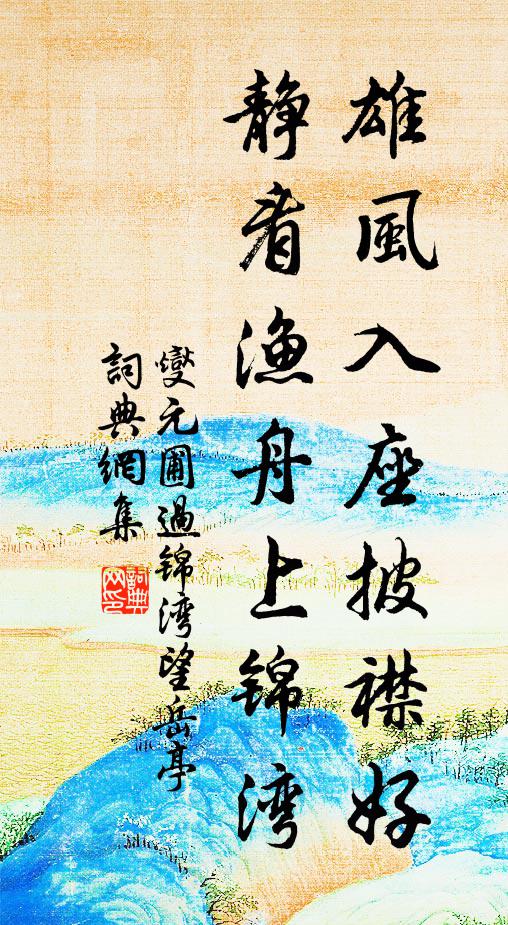 雄風入座披襟好
靜看漁舟上錦灣
燮元圃過錦灣望岳亭
詞典網集
詞典網印